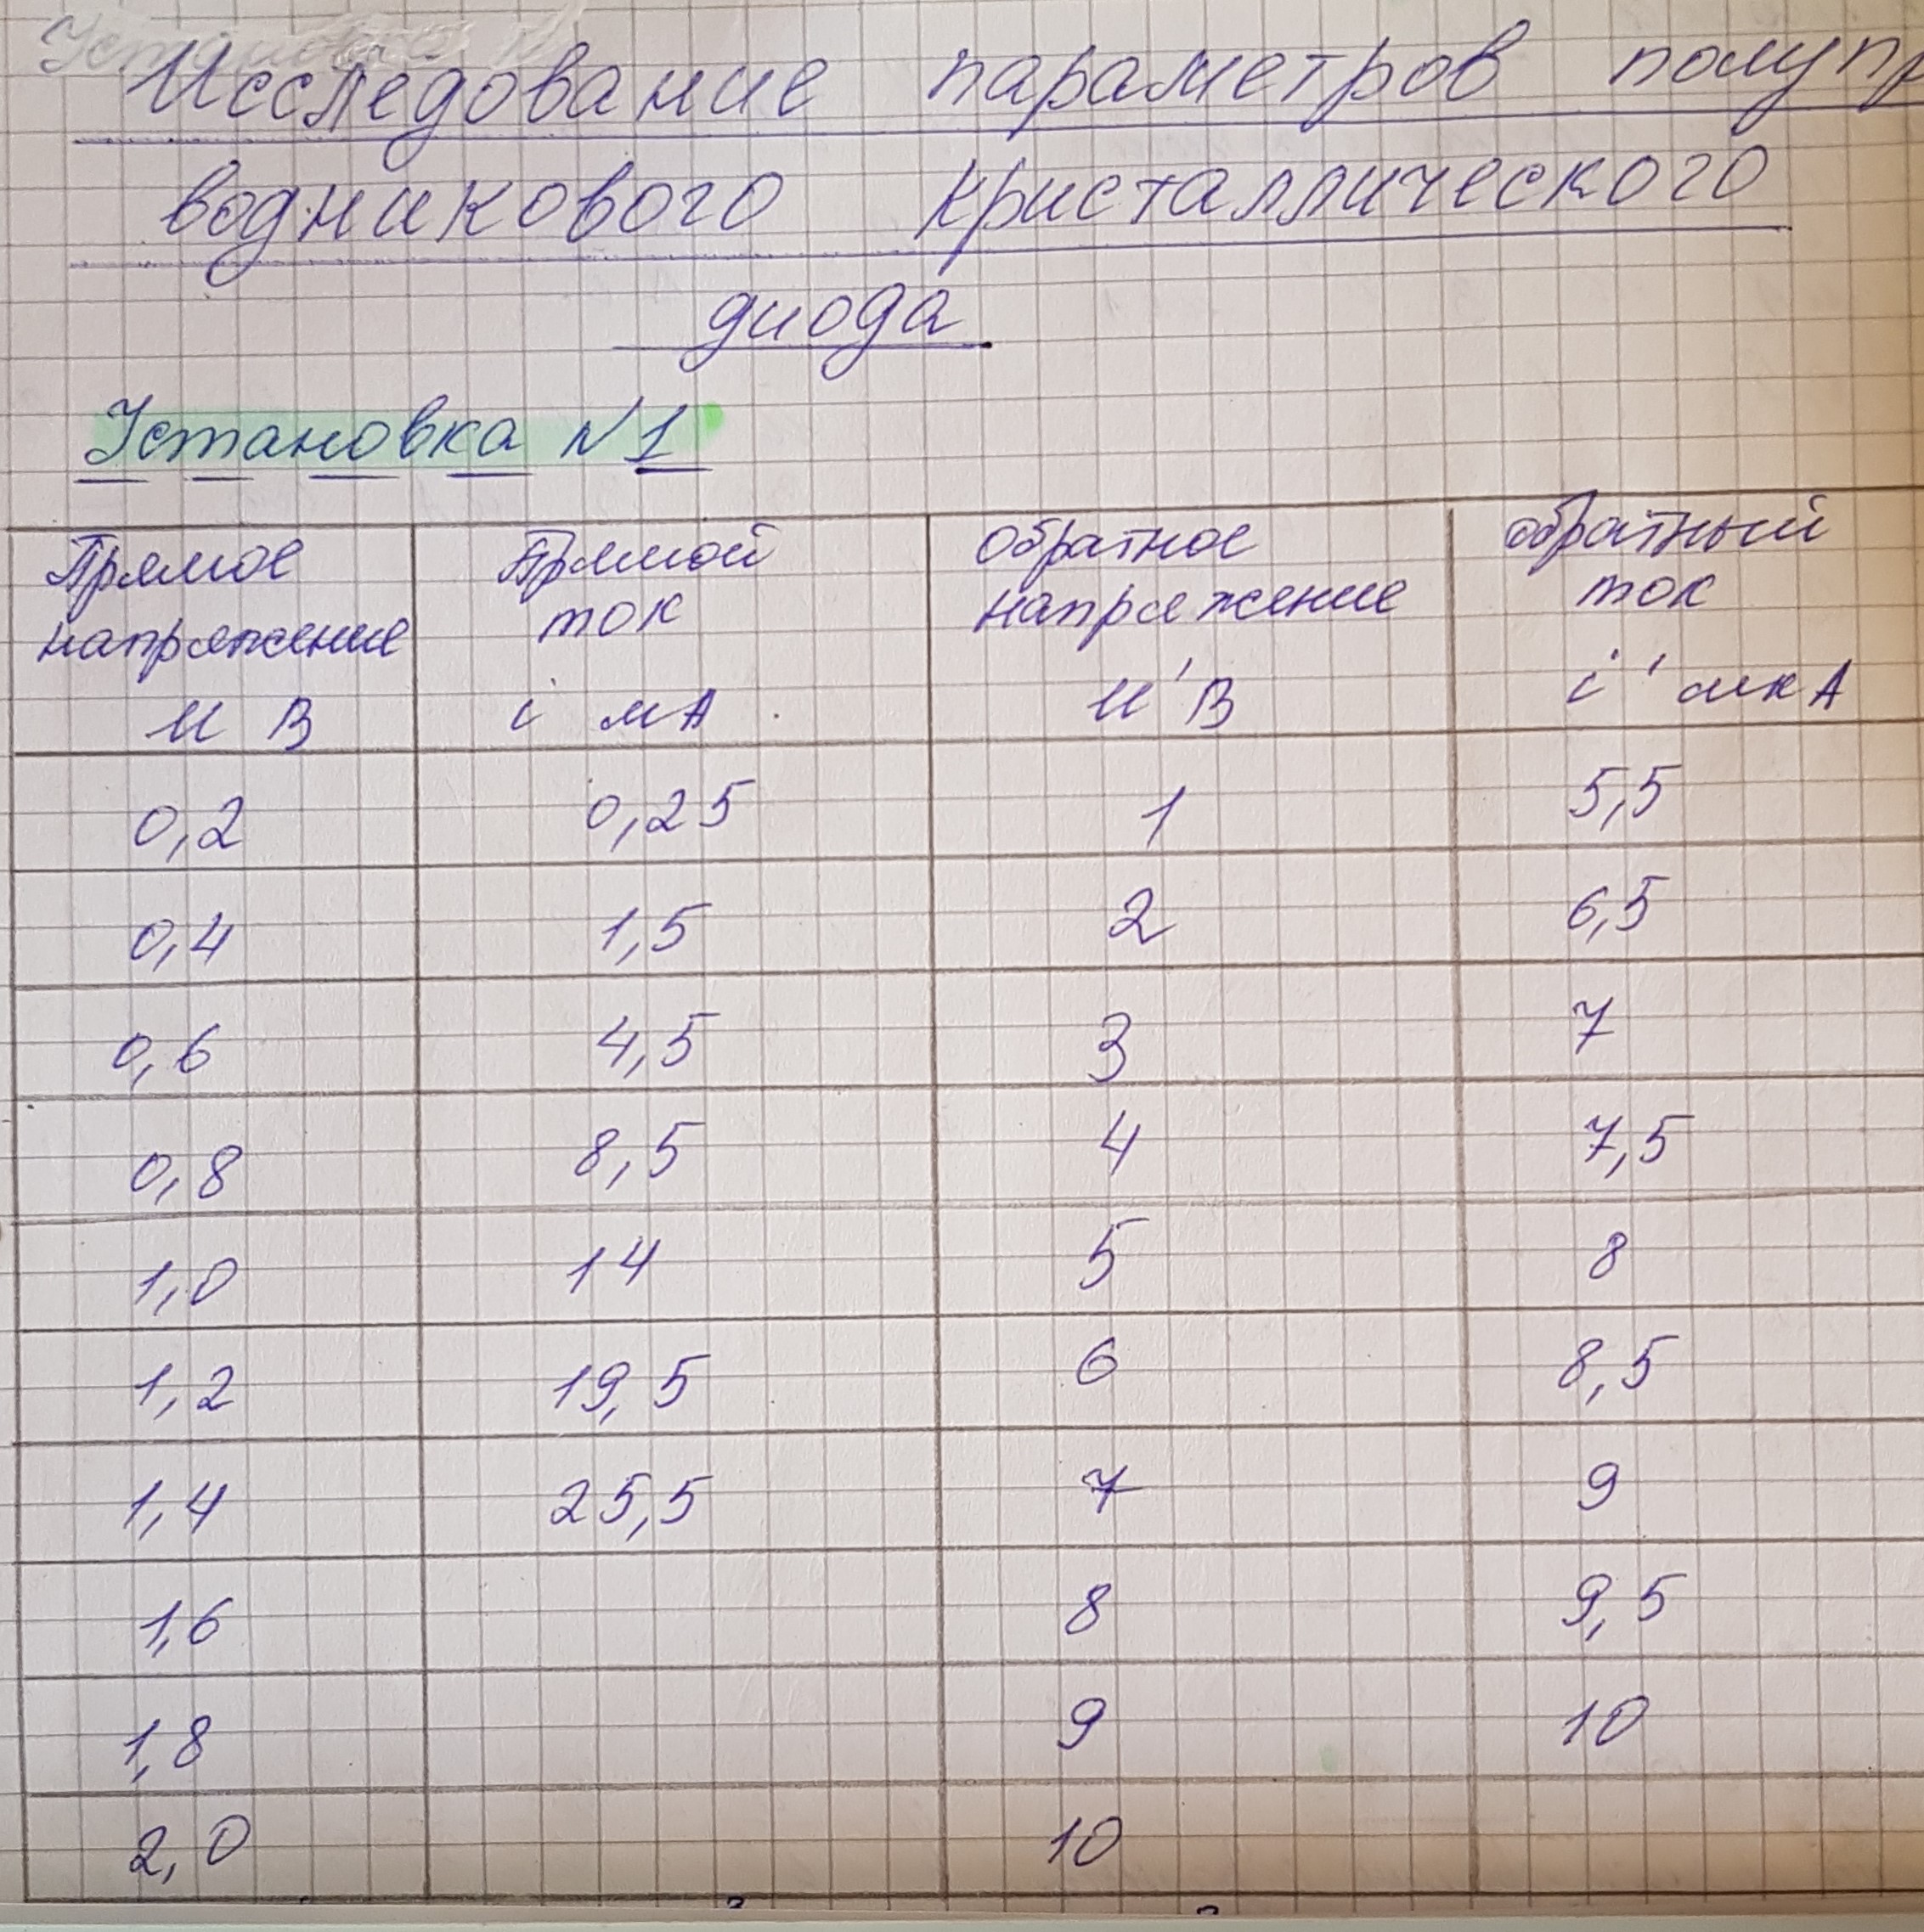 Исследование параметров полупр
водникового кристаллического
диода
Установка N1
Прямое напряжение U В | Прямой ток i мА | Обратное напряжение U' В | обратный ток i' мкА
0,2 | 0,25 | 1 | 5,5
0,4 | 1,5 | 2 | 6,5
0,6 | 4,5 | 3 | 7
0,8 | 8,5 | 4 | 7,5
1,0 | 14 | 5 | 8
1,2 | 19,5 | 6 | 8,5
1,4 | 25,5 | 7 | 9
1,6 | | 8 | 9,5
1,8 | | 9 | 10
2,0 | | 10 |